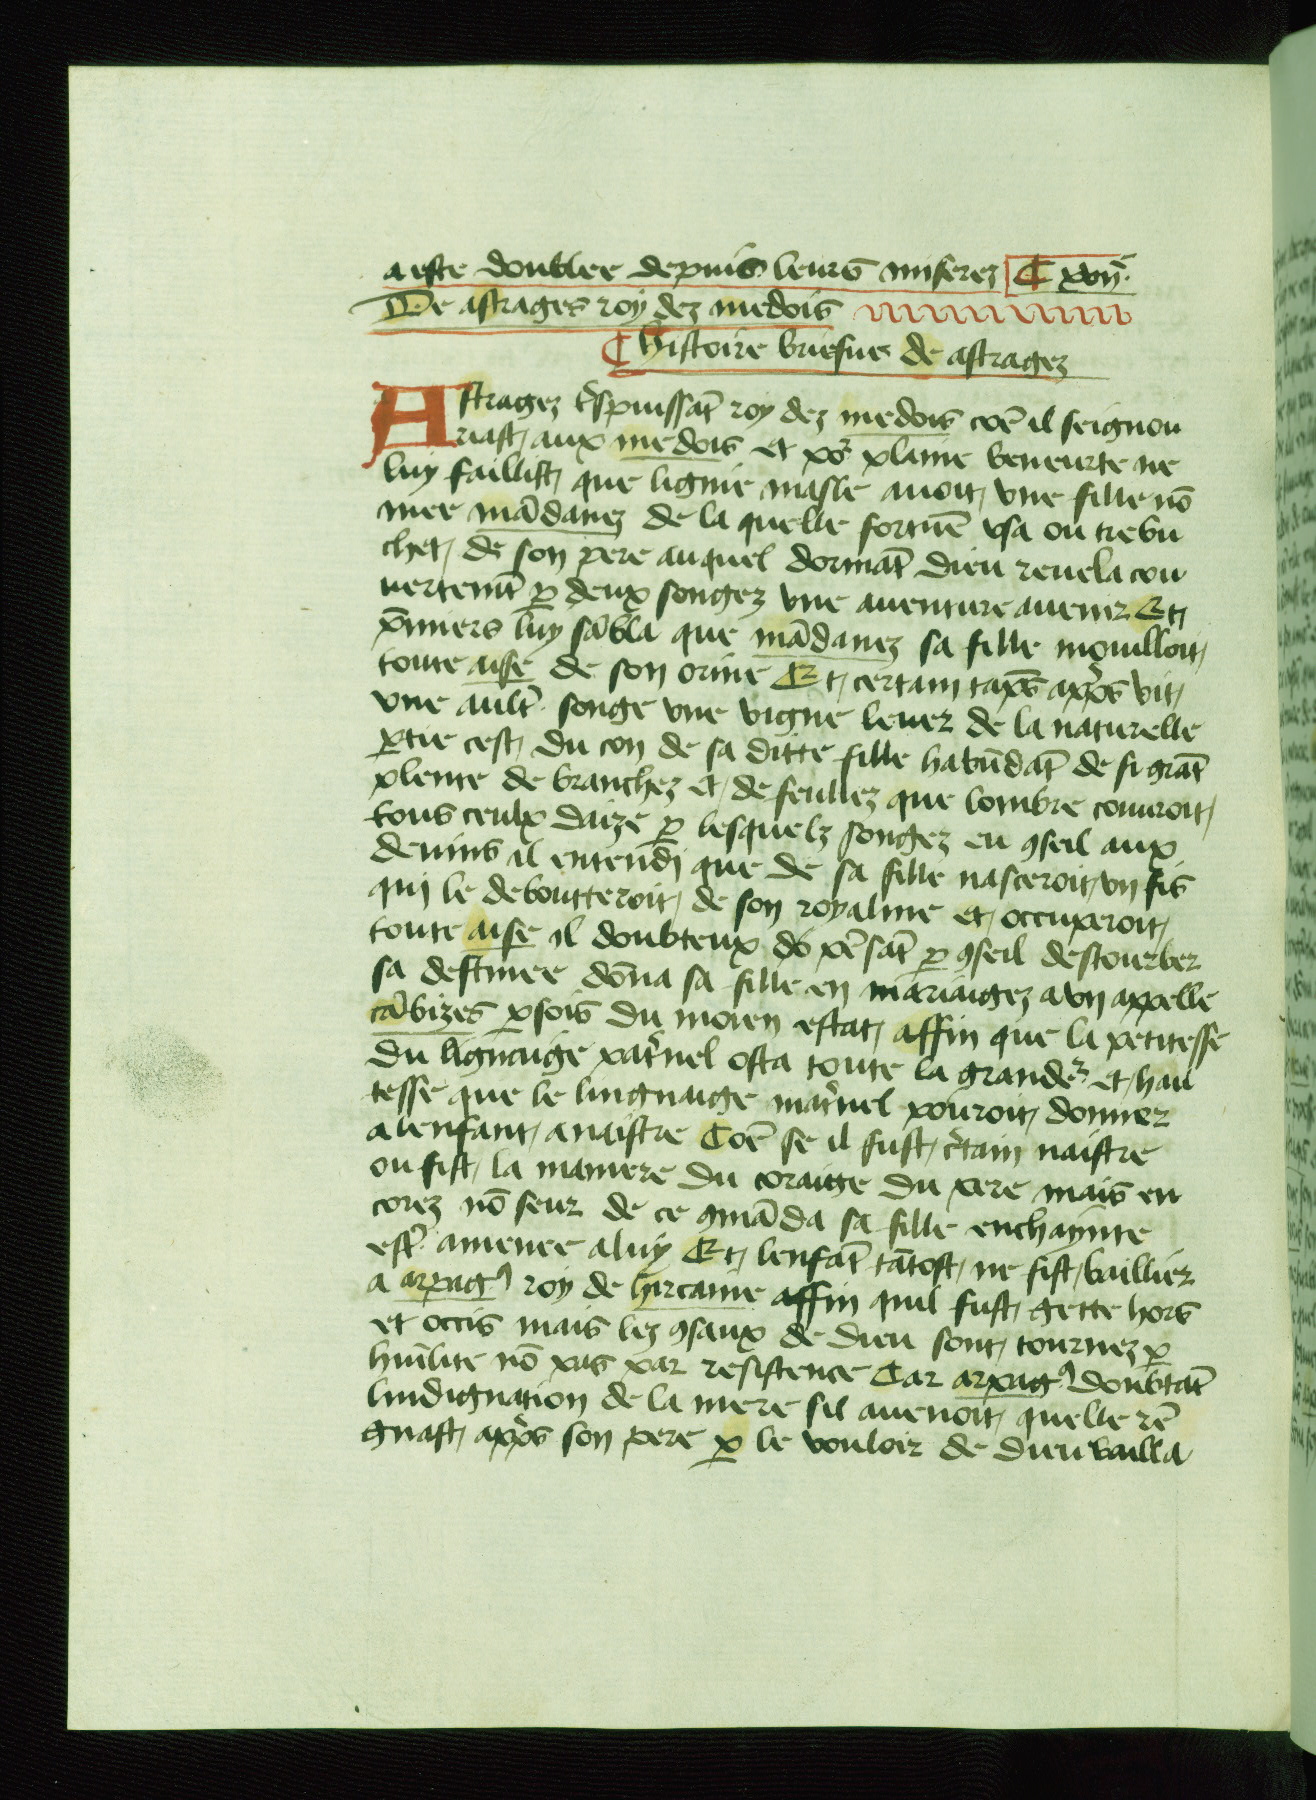 a este doublee depuis leurs miserez ¶ xvii.
De astrages roy dez medois
¶ histoire briefue de astragez
Astragez t̾spuissāt roy dez medois cōe il seignou
riast aux medois et po᷑ plaine beneurte ne
luy faillist que lignie masle auoit vne fille nō
mee mādanez de la quelle fortune vsa ou trebu
chet de son pere auquel dormāt dieu reuela cou
uertemt̄ ꝑ deux songez vne auenture auenir Et
p̄miers luy sābla que mādanez sa fille mouilloit
toute aisse de son orine Et certain tāps app̾s vit
vne ault̾ songe vne vigne leuer de la naturelle
ꝑtie cest du con de sa ditte fille habūdāt de si grāt
plente de branchez et de feullez que lombre couuroit
tous ceulx daize ꝑ lesquelz songez eu ꝯseil aux
deuins il entendi que de sa fille nasceroit vn fis
qui le deboutteroit de son royalme et occuperoit
toute aise il doubteux dō pēsāt ꝑ ꝯseil destourber
sa destinee dōna sa fille en mariaigez a vn appelle
cābizes ꝑsois du moien estat affin que la petitesse
du lignaige pat̾nel osta toute la grande᷑ et hau
tesse que le lingnaige mat̾nel pouroit donner
a lenfant a naistre Cōe se il fust c̾tain naistre
ou fist la maniere du coraige du pere mais en
corez nō seur de ce ꝯmāda sa fille enchaynte
est̾ amenee a luy Et lenfāt tātost ne fist baillier
a arpagꝰ roy de hircanie affin quil fust gette hors
et occis mais lez ꝯsaux de dieu sont tournez ꝑ
humlite nō pas par resistence Car arpagꝰ doubtāt
lindignation de la mere sil auenoit quelle rē
gnast app̾s son pere ꝑ le vouloir de dieu bailla